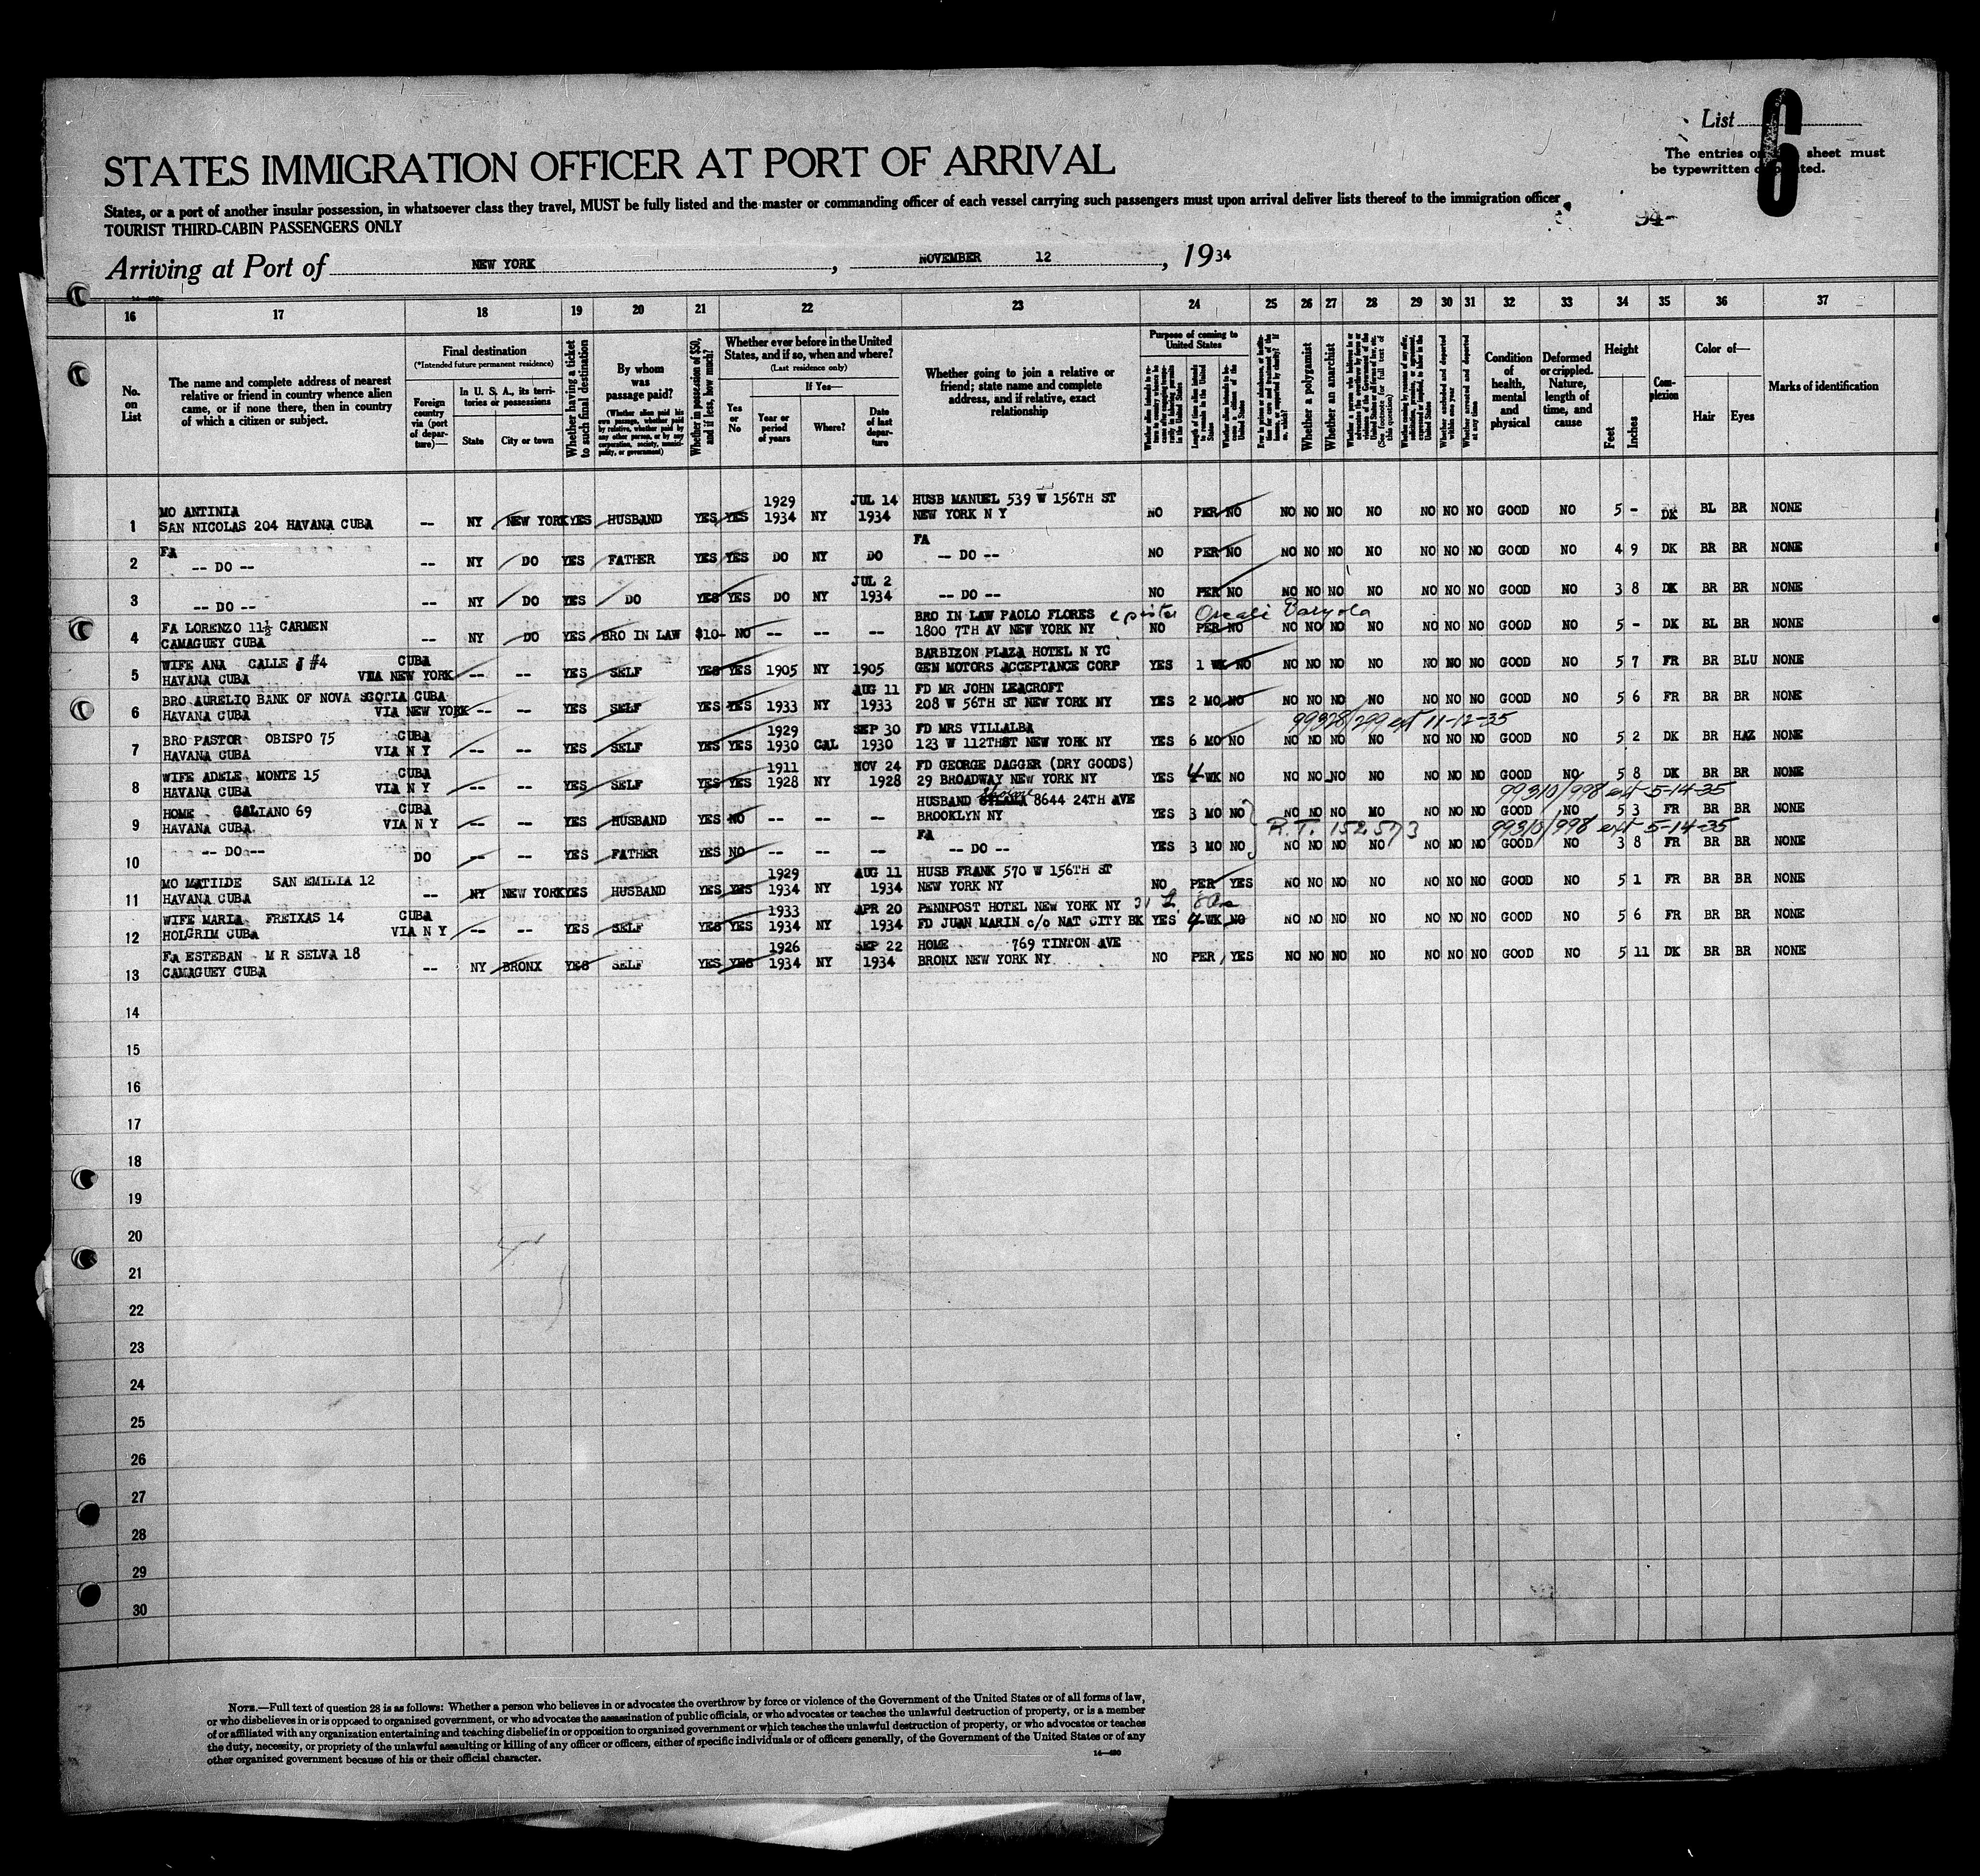 List 6
The entries on sheet must
be typewritten
STATES IMMIGRATION OFFICER AT PORT OF ARRIVAL
States, or a port of another insular possession, in whatsoever class they travel, MUST be fully listed and the master or commanding officer of each vessel carrying such passengers must upon arrival deliver lists thereof to the immigration officer
TOURIST THIRD-CABIN PASSENGERS ONLY
94-
Arriving at Port of NEW YORK, NOVEMBER 12, 1934
16 17 18 19 20 21 22 23 24 25 26 27 28 29 30 31 32 33 34 35 36 37
No. on List
The name and complete address of nearest relative or friend in country whence alien came, or if none there, then in country of which a citizen or subject.
Final destination
(*Intended future permanent residence)
Foreign country via (port of departure)—
In U. S. A., its territories or possessions
State
City or town
Whether having a ticket to such final destination
By whom was passage paid?
(Whether alien paid his own passage, whether paid by relative, whether paid by any other person, or by any corporation, society, municipality, or government)
Whether in possession of $50, and if less, how much?
Whether ever before in the United States, and if so, when and where?
(Last residence only)
Yes or No
If Yes—
Year or period of years
Where?
Date of last departure
Whether going to join a relative or friend; state name and complete address, and if relative, exact relationship
Purpose of coming to United States
Length of time alien intends to remain in the United States
Whether a polygamist
Whether an anarchist
(See footnote for full text of this question)
Whether excluded and deported within one year
Whether arrested and deported at any time
Condition of health, mental and physical
Deformed or crippled. Nature, length of time, and cause
Height
Feet
Inches
Complexion
Color of—
Hair
Eyes
Marks of identification
1929 JUL 14 HUSB MANUEL 539 W 156TH ST
MO ANTINIA
1 SAN NICOLAS 204 HAVANA CUBA -- NY NEW YORK YES HUSBAND YES YES 1934 NY 1934 NEW YORK N Y NO PER NO NO NO NO NO NO NO NO GOOD NO 5 - DK BL BR NONE
FA FA
2 -- DO -- -- NY DO YES FATHER YES YES DO NY DO -- DO -- NO PER NO NO NO NO NO NO NO NO GOOD NO 4 9 DK BR BR NONE
JUL 2
3 -- DO -- -- NY DO YES DO YES YES DO NY 1934 -- DO -- NO PER NO NO NO NO NO NO NO NO GOOD NO 3 8 DK BR BR NONE
FA LORENZO 11½ CARMEN BRO IN LAW PAOLO FLORES
4 CAMAGUEY CUBA -- NY DO YES BRO IN LAW $10- NO -- -- -- 1800 7TH AV NEW YORK NY NO PER NO NO NO NO NO NO NO NO GOOD NO 5 - DK BL BR NONE
WIFE ANA CALLE J #4 CUBA BARBIZON PLAZA HOTEL N YC
5 HAVANA CUBA VIA NEW YORK -- -- YES SELF YES YES 1905 NY 1905 GEN MOTORS ACCEPTANCE CORP YES 1 WK NO NO NO NO NO NO NO NO GOOD NO 5 7 FR BR BLU NONE
BRO AURELIO BANK OF NOVA SCOTIA CUBA AUG 11 FD MR JOHN LEACROFT
6 HAVANA CUBA VIA NEW YORK -- -- YES SELF YES YES 1933 NY 1933 208 W 56TH ST NEW YORK NY YES 2 MO NO NO NO NO NO NO NO NO GOOD NO 5 6 FR BR BR NONE
99328/299 ext 11-12-35
BRO PASTOR OBISPO 75 CUBA 1929 SEP 30 FD MRS VILLALBA
7 HAVANA CUBA VIA N Y -- -- YES SELF YES YES 1930 CAL 1930 123 W 112THST NEW YORK NY YES 6 MO NO NO NO NO NO NO NO NO GOOD NO 5 2 DK BR HAZ NONE
WIFE ADELE MONTE 15 CUBA 1911 NOV 24 FD GEORGE DAGGER (DRY GOODS)
8 HAVANA CUBA VIA N Y -- -- YES SELF YES YES 1928 NY 1928 29 BROADWAY NEW YORK NY YES 4 WK NO NO NO NO NO NO NO NO GOOD NO 5 8 DK BR BR NONE
99310/998 ext 5-14-35
HOME GALIANO 69 CUBA HUSBAND 8644 24TH AVE
9 HAVANA CUBA VIA N Y -- -- YES HUSBAND YES NO -- -- -- BROOKLYN NY YES 3 MO NO NO NO NO NO NO NO NO GOOD NO 5 3 FR BR BR NONE
R.T. 152573 99310/998 ext 5-14-35
FA
10 -- DO -- DO -- -- YES FATHER YES NO -- -- -- -- DO -- YES 3 MO NO NO NO NO NO NO NO NO GOOD NO 3 8 FR BR BR NONE
MO MATILDE SAN EMILIA 12 1929 AUG 11 HUSB FRANK 570 W 156TH ST
11 HAVANA CUBA -- NY NEW YORK YES HUSBAND YES YES 1934 NY 1934 NEW YORK NY NO PER YES NO NO NO NO NO NO NO GOOD NO 5 1 FR BR BR NONE
WIFE MARIA FREIXAS 14 CUBA 1933 APR 20 PENNPOST HOTEL NEW YORK NY
12 HOLGRIM CUBA VIA N Y -- -- YES SELF YES YES 1934 NY 1934 FD JUAN MARIN c/o NAT CITY BK YES 4 WK NO NO NO NO NO NO NO NO GOOD NO 5 6 FR BR BR NONE
FA ESTEBAN M R SELVA 18 1926 SEP 22 HOME 769 TINTON AVE
13 CAMAGUEY CUBA -- NY BRONX YES SELF YES YES 1934 NY 1934 BRONX NEW YORK NY NO PER YES NO NO NO NO NO NO NO GOOD NO 5 11 DK BR BR NONE
14
15
16
17
18
19
20
21
22
23
24
25
26
27
28
29
30
NOTE.—Full text of question 28 is as follows: Whether a person who believes in or advocates the overthrow by force or violence of the Government of the United States or of all forms of law,
or who disbelieves in or is opposed to organized government, or who advocates the assassination of public officials, or who advocates or teaches the unlawful destruction of property, or is a member
of or affiliated with any organization entertaining and teaching disbelief in or opposition to organized government or which teaches the unlawful destruction of property, or who advocates or teaches
the duty, necessity, or propriety of the unlawful assaulting or killing of any officer or officers, either of specific individuals or of officers generally, of the Government of the United States or of any
other organized government because of his or their official character.
14—490